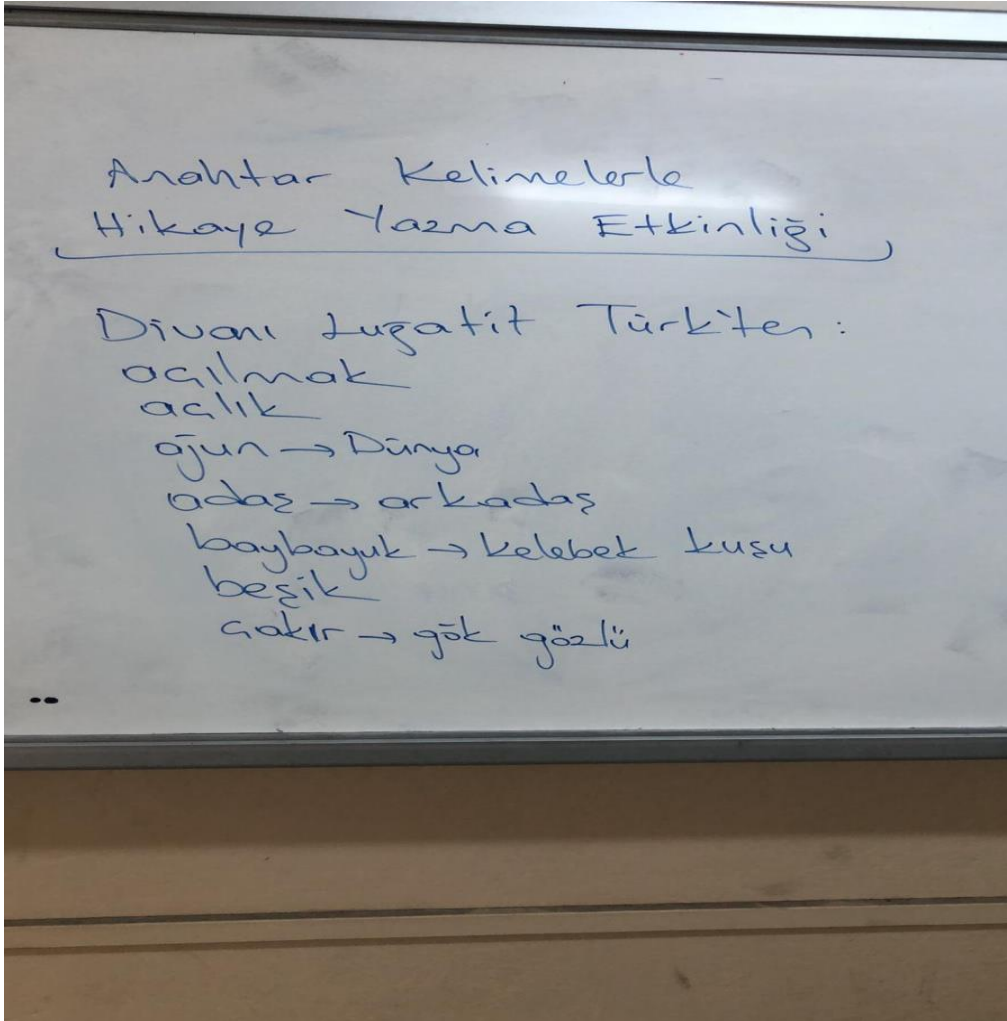 Anahtar Kelimelerle
Hikaye Yazma Etkinliği
Divanı Lugatit Türk'ten:
açılmak
açlık
ajun → Dünya
adaş → arkadaş
baybayuk → kelebek kuşu
beşik
çakır → gök gözlü